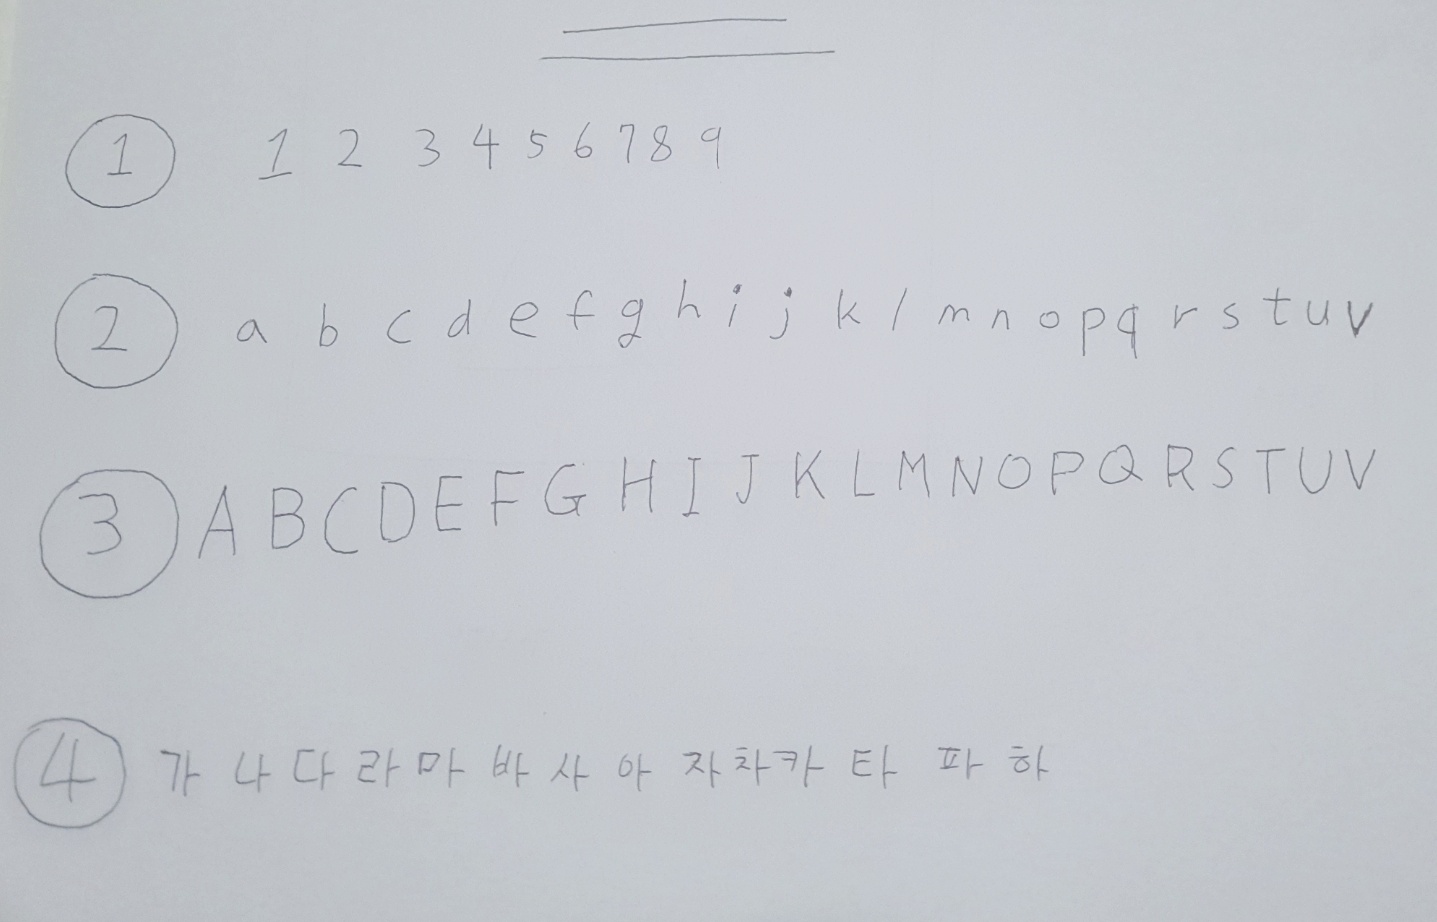 ① 1 2 3 4 5 6 7 8 9
② a b c d e f g h i j k l m n o p q r s t u v
③ A B C D E F G H I J K L M N O P Q R S T U V
④ 가 나 다 라 마 바 사 아 자 차 카 타 파 하